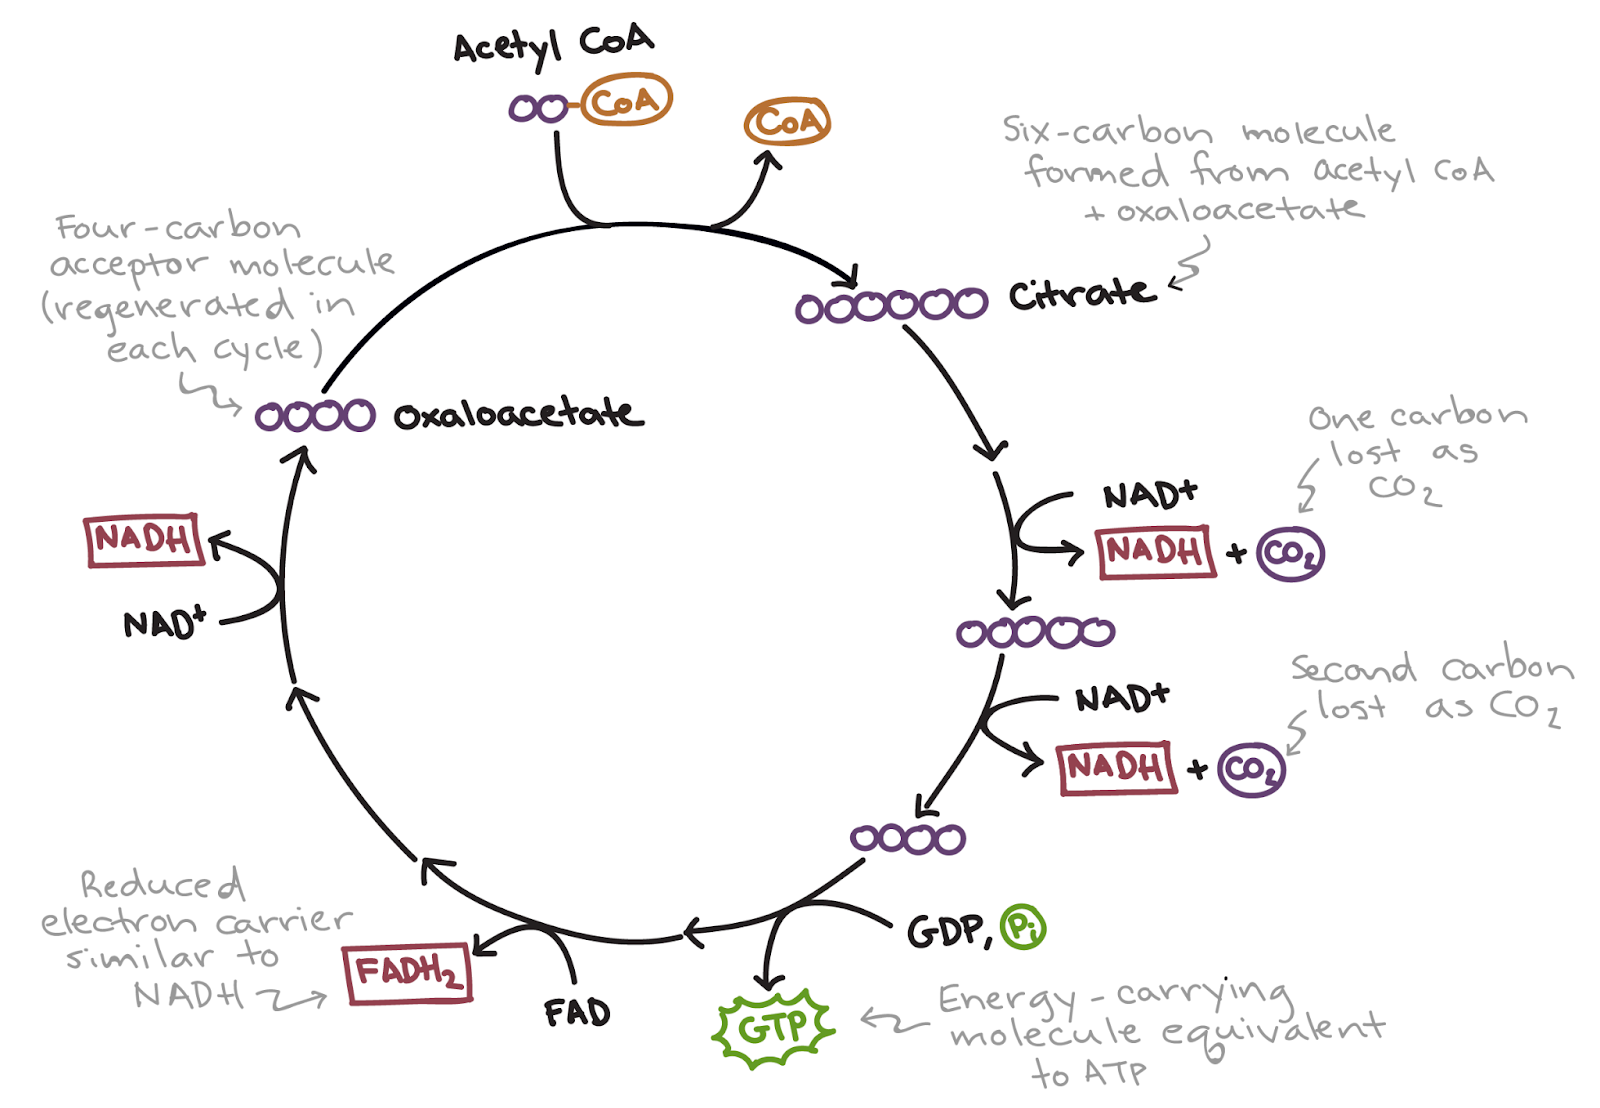 Acetyl CoA
CoA
CoA
Six-carbon molecule
formed from acetyl CoA
+ oxaloacetate
Citrate
Four-carbon
acceptor molecule
(regenerated in
each cycle)
oxaloacetate
One carbon
lost as
CO2
NAD+
NADH + CO2
Second carbon
lost as CO2
NAD+
NADH + CO2
GDP, Pi
GTP
Energy-carrying
molecule equivalent
to ATP
FAD
FADH2
Reduced
electron carrier
similar to
NADH
NADH
NAD+